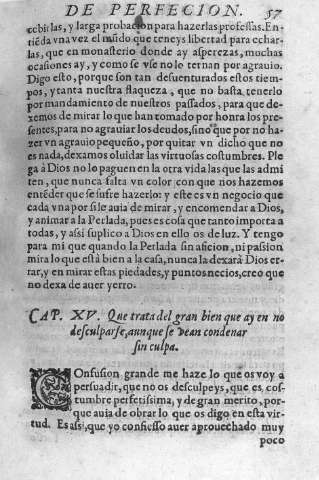 DE PERFECION. 57
cebirlas, y larga probacion para hazerlas professas. En-
tiẽda vna vez el mũdo que teneys libertad para echar-
las, que en monasterio donde ay asperezas, muchas
ocasiones ay, y como se vse no le ternan por agrauio.
Digo esto, porque son tan desuenturados estos tiem-
pos, y tanta nuestra flaqueza, que no basta tenerlo
por mandamiento de nuestros passados, para que de-
xemos de mirar lo que han tomado por honra los pre-
sentes, para no agrauiar los deudos, sino que por no ha-
zer vn agrauio pequeño, por quitar vn dicho que no
es nada, dexamos oluidar las virtuosas costumbres. Ple
ga à Dios no lo paguen en la otra vida las que las admi
ten, que nunca falta vn color con que nos hazemos
entẽder que se sufre hazerlo: y este es vn negocio que
cada vna por si le auia de mirar, y encomendar a Dios,
y animar a la Perlada, pues es cosa que tanto importa a
todas, y assi suplico a Dios en ello os de luz. Y tengo
para mi que quando la Perlada sin aficion, ni passion
mira lo que està bien a la casa, nunca la dexarà Dios er-
rar, y en mirar estas piedades, y puntos necios, creo que
no dexa de auer yerro.
CAP. XV. Que trata del gran bien que ay en no
desculparse, aunque se vean condenar
sin culpa.
COnfusion grande me haze lo que os voy a
persuadir, que no os desculpeys, que es cos-
tumbre perfetissima, y de gran merito, por-
que auia de obrar lo que os digo en esta vir-
tud. Es assi, que yo confiesso auer aprouechado muy
poco